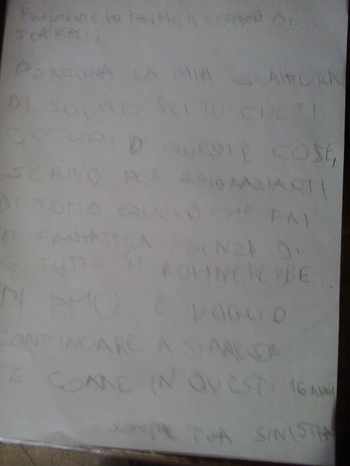 FINALMENTE HO DI
SCRIVERTI,
PERDONA LA MIA SCRITTURA
DI SOLITO SEI TU CHE TI
OCCUPI DI QUESTE COSE,
SCRIVO PER RINGRAZIARTI
DI TUTTO QUELLO CHE FAI
SEI FANTASTICA SENZA DI
TE TUTTO SI ROVINEREBBE...
TI AMO E VOGLIO
CONTINUARE A
TE COME IN QUESTI 16 ANNI
TUA SINISTRA